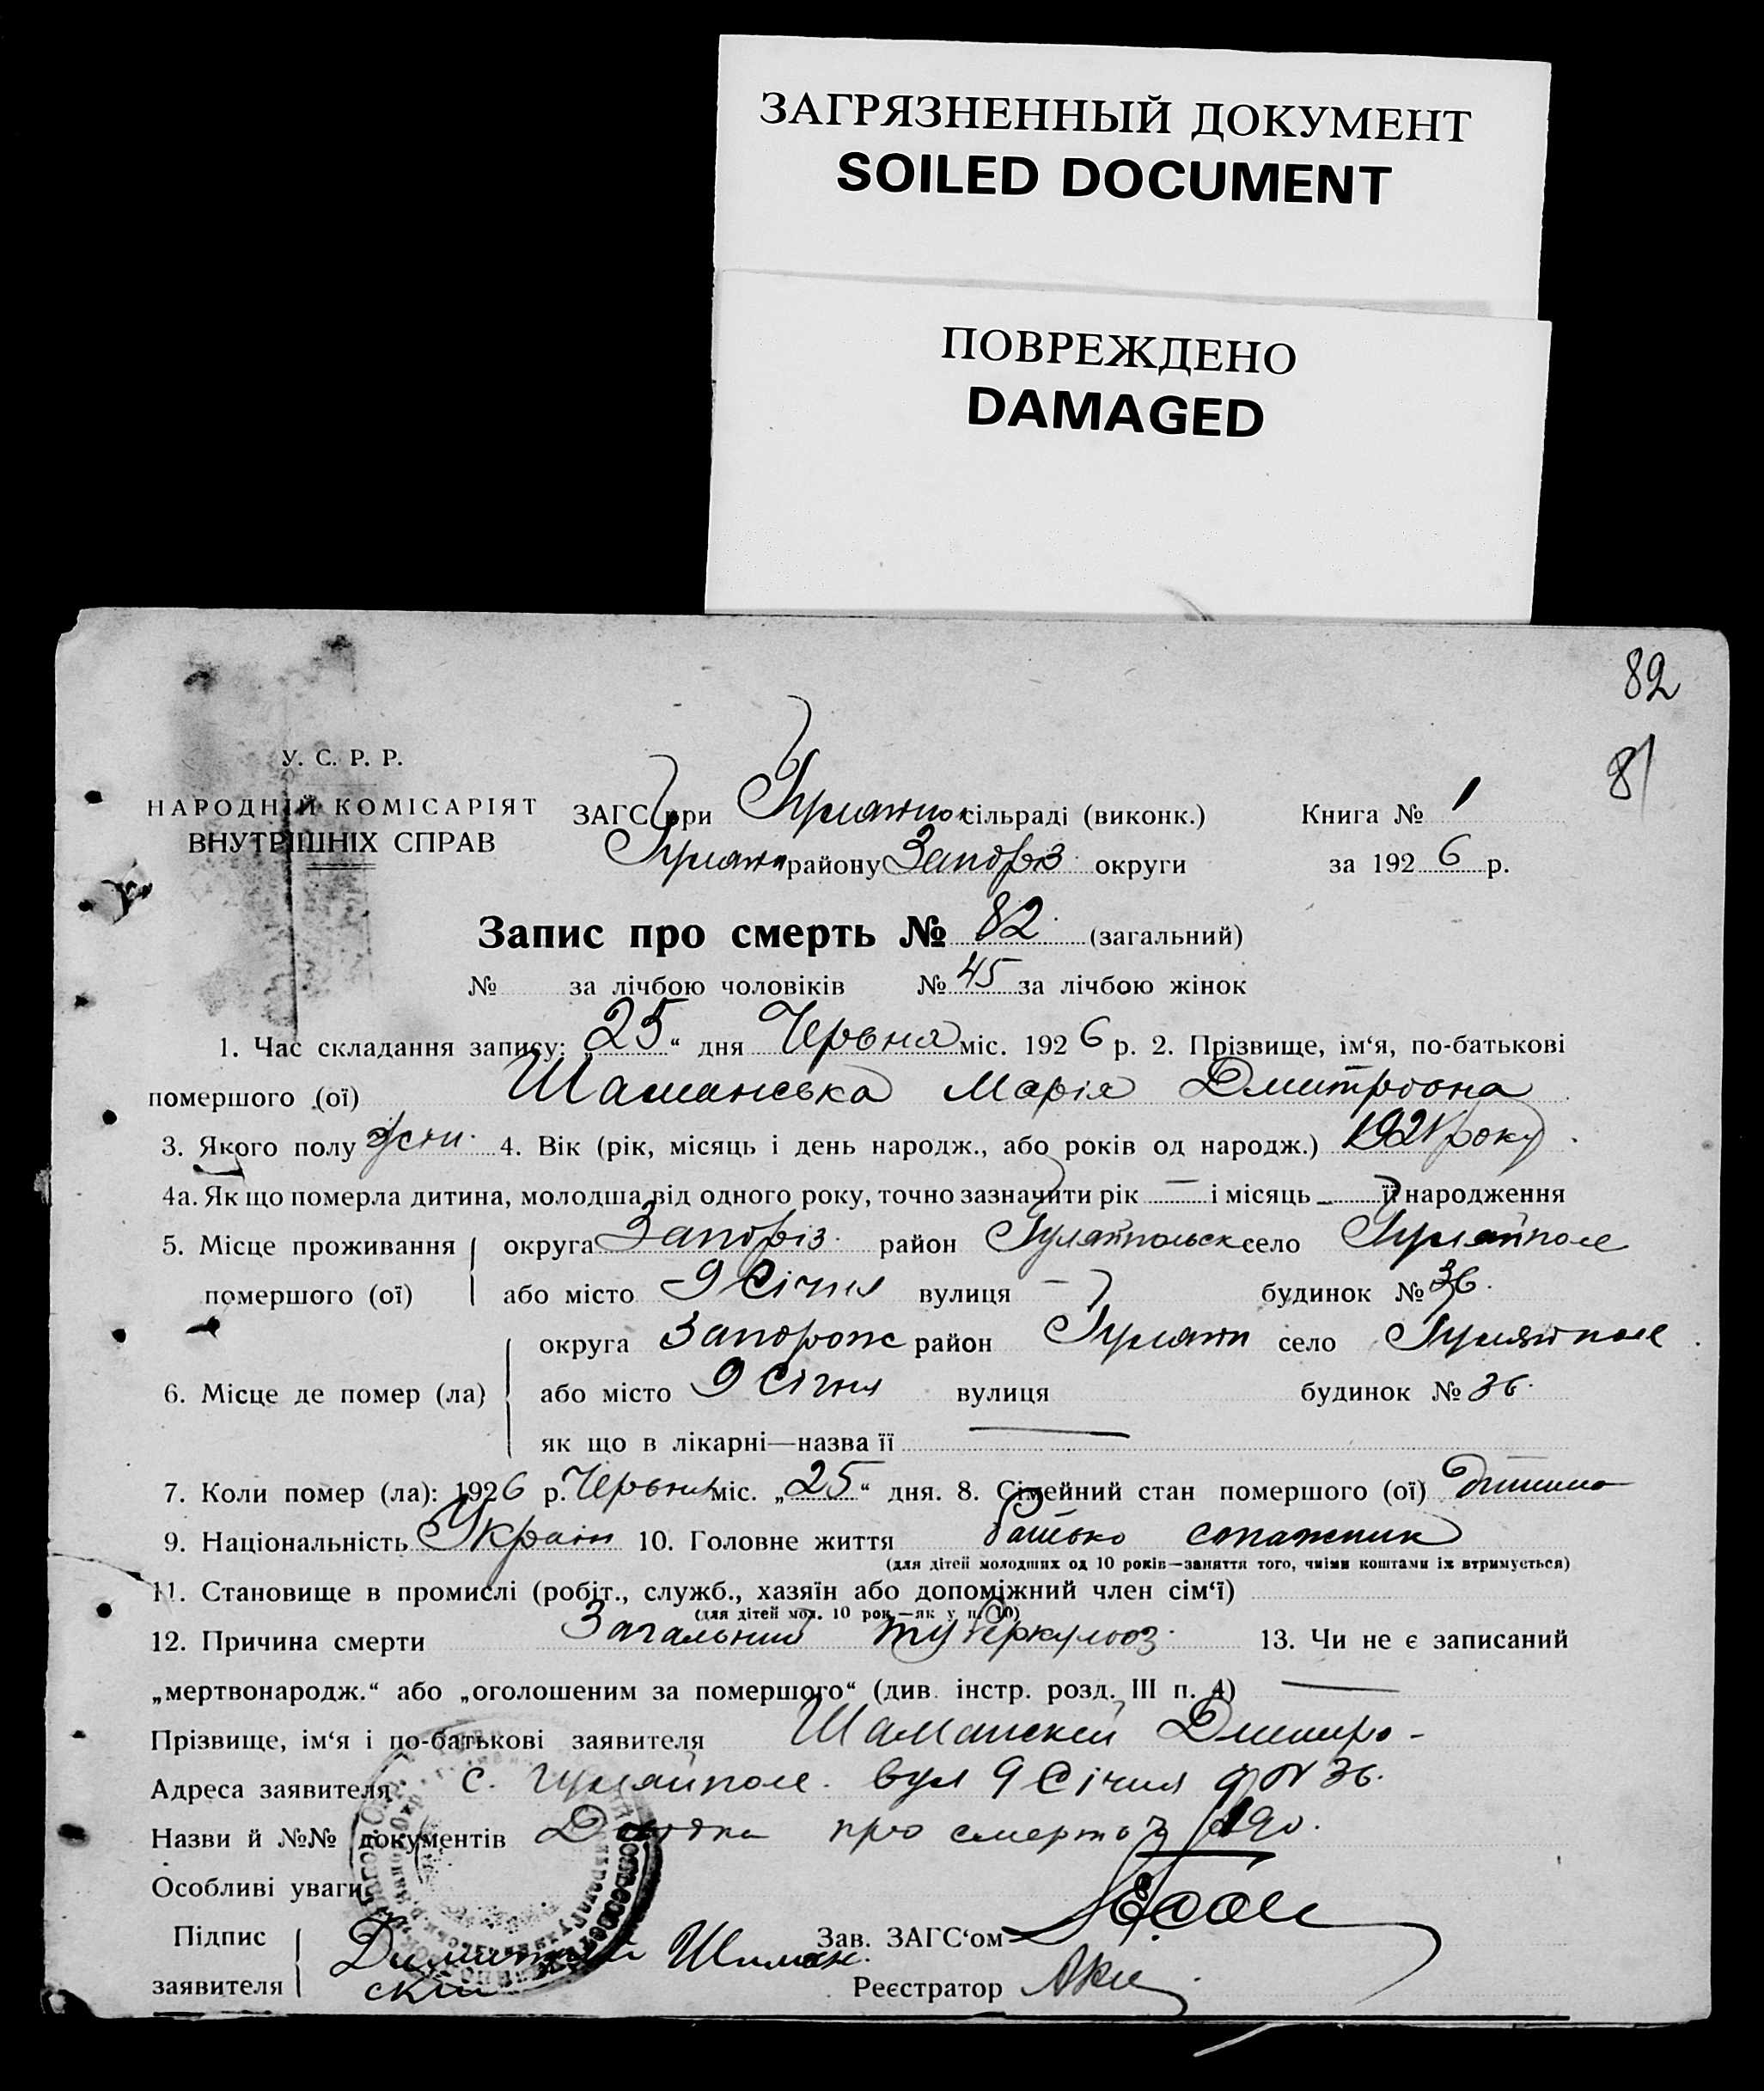 ЗАГРЯЗНЕННЫЙ ДОКУМЕНТ
SOILED DOCUMENT
ПОВРЕЖДЕНО
DAMAGED
82
81
У. С. Р. Р.
НАРОДНІЙ КОМІСАРІЯТ
ВНУТРІШНІХ СПРАВ
ЗАГС при Гуляйпол сільраді (виконк.) Книга № 1
району Запоріз округи за 1926 р.
Запис про смерть № 82 (загальний)
№ за лічбою чоловіків № 45 за лічбою жінок
1. Час складання запису: „25“ дня Червня міс. 1926 р. 2. Прізвище, ім‘я, по-батькові
помершого (ої) Шаманська Марія Дмитровна
3. Якого полу жін. 4. Вік (рік, місяць і день народж., або років од народж.) 1921 року
4а. Як що померла дитина, молодша від одного року, точно зазначити рік — і місяць — її народження
5. Місце проживання округа Запоріз. район Гуляйпольск село Гуляйполе
помершого (ої) або місто 9 Січня вулиця — будинок № 36.
округа Запорож район Гуляйп село Гуляйполе
6. Місце де помер (ла) або місто 9 Січня вулиця будинок № 36.
як що в лікарні—назва її —
7. Коли помер (ла): 1926 р. Червня міс. „25“ дня. 8. Сімейний стан помершого (ої) дитина
9. Національність Україн 10. Головне життя батько
(для дітей молодших од 10 років—заняття того, чиїми коштами їх втримується)
11. Становище в промислі (робіт., служб., хазяїн або допоміжний член сім‘ї)
(для дітей мол. 10 рок.—як у п. 10)
12. Причина смерти Загальний туберкульоз. 13. Чи не є записаний
„мертвонародж.“ або „оголошеним за помершого“ (див. інстр. розд. III п. 4) —
Прізвище, ім‘я і по-батькові заявителя Шаманский Дмитро -
Адреса заявителя с. Гуляйполе. вул 9 Січня № 36.
Назви й №№ документів Довідка про смерть 190.
Особливі уваги
Підпис
заявителя Димитрий Шаман.
ский
Зав. ЗАГС‘ом
Реєстратор